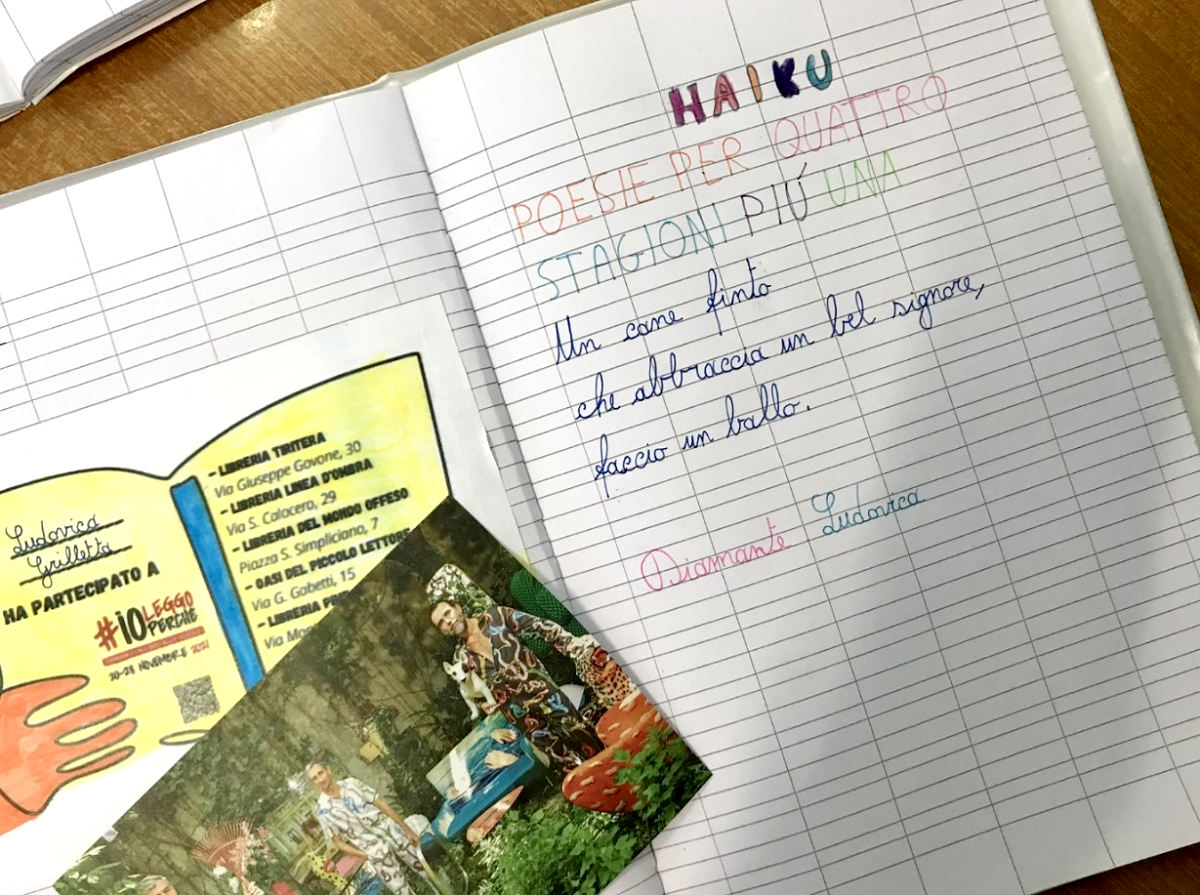 Ludovica
Grilletta
HA PARTECIPATO A
#IO LEGGO
PERCHÉ
20-28 NOVEMBRE 2021
- LIBRERIA TIRITERA
Via Giuseppe Govone, 30
- LIBRERIA LINEA D'OMBRA
Via S. Calocero, 29
- LIBRERIA DEL MONDO OFFESO
Piazza S. Simpliciano, 7
- OASI DEL PICCOLO LETTORE
Via G. Gabetti, 15
- LIBRERIA
Via
HAIKU
POESIE PER QUATTRO
STAGIONI PIÚ UNA
Un cane finto
che abbraccia un bel signore,
faccio un ballo.
Diamante Ludovica